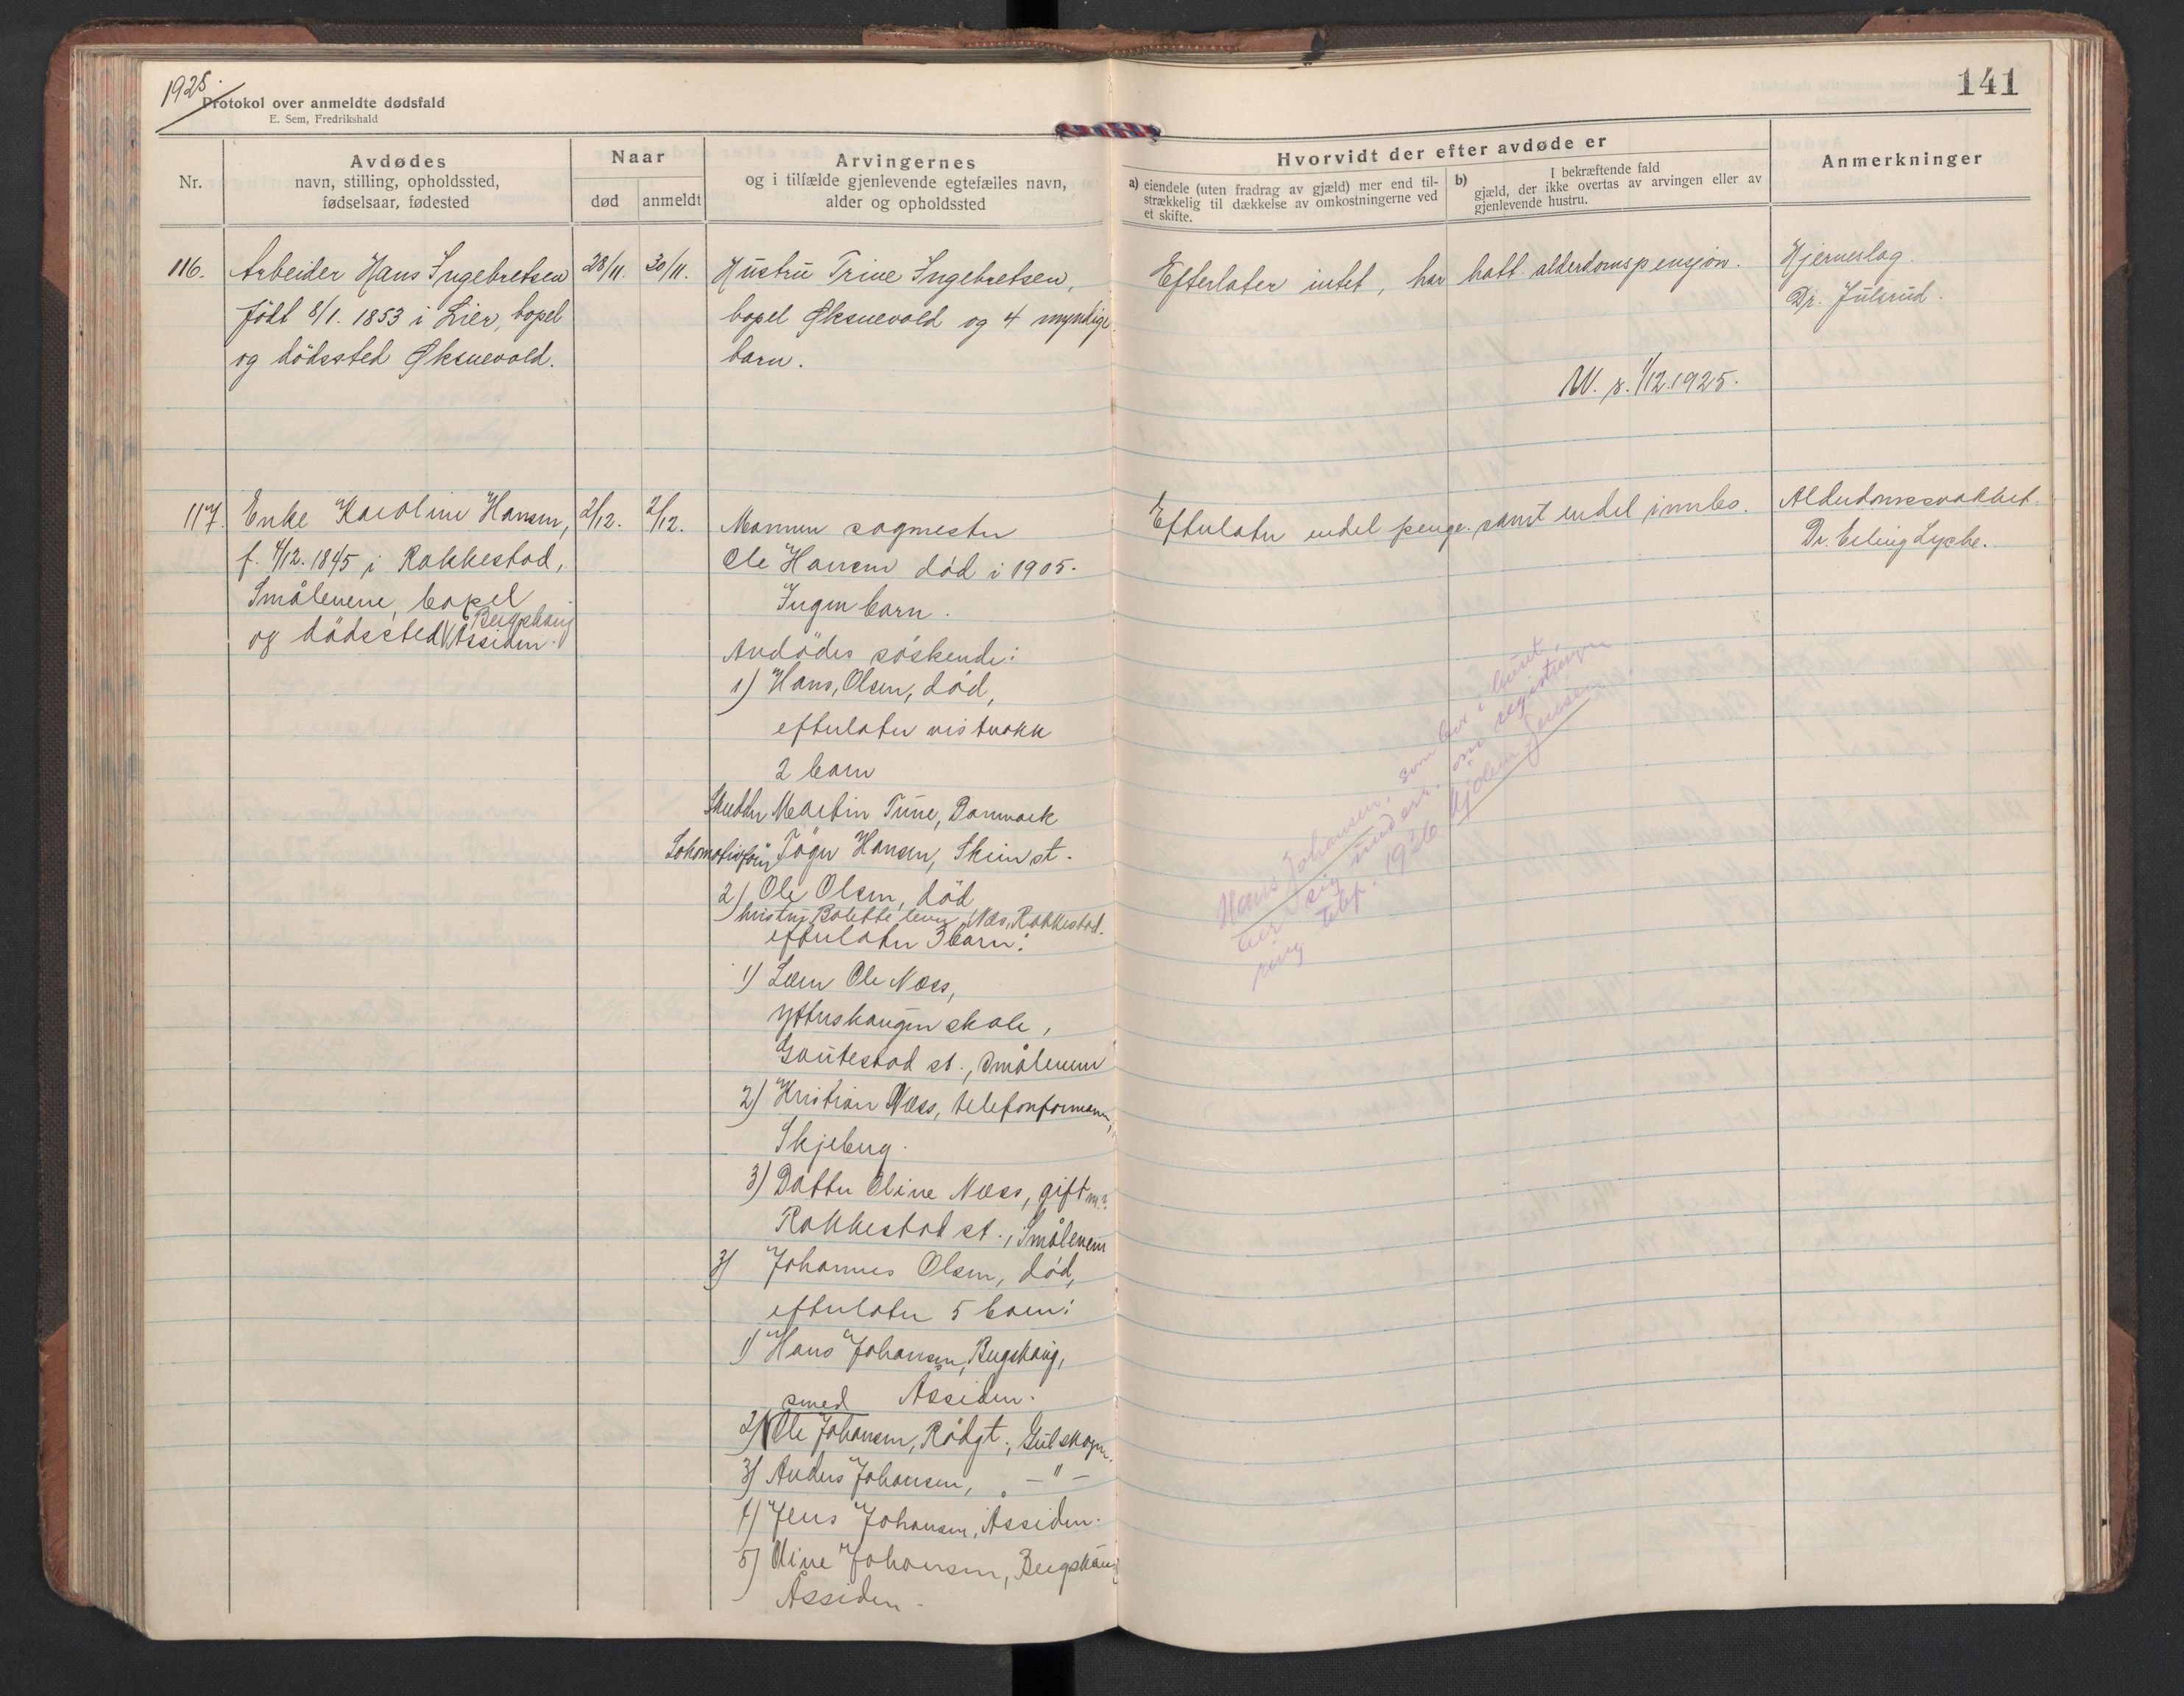 1925.
141
Protokol over anmeldte dødsfald
E. Sem, Fredrikshald
Nr.
Avdødes
navn, stilling, opholdssted,
fødselsaar, fødested
Naar
død
anmeldt
Arvingernes
og i tilfælde gjenlevende egtefælles navn,
alder og opholdssted
Hvorvidt der efter avdøde er
a) eiendele (uten fradrag av gjæld) mer end til-
strækkelig til dækkelse av omkostningerne ved
et skifte.
b) I bekræftende fald
gjæld, der ikke overtas av arvingen eller av
gjenlevende hustru.
Anmerkninger
116.
Arbeider Hans Ingebretsen
født 8/1. 1853 i Lier, bopel
og dødssted Øksnevold.
28/11.
30/11.
Hustru Trine Ingebretsen,
bopel Øksnevold og 4 myndige
barn.
Efterlater intet, har hatt alderdomspensjon.
1/12.1925.
Hjerneslag.
Dr. Julsrud.
117.
Enke Karoline Hansen,
f. 4/12. 1845 i Rakkestad,
Smålenene, bopel
Bergshaug
og dødssted Åssiden.
2/12.
2/12.
Mannen sagmester
Ole Hansen død i 1905.
Ingen barn.
Avdødes søskende:
1) Hans Olsen, død,
efterlater vistnokk
2 barn
Martin Tune, Danmark
Hansen, Skien st.
2) Ole Olsen, død
hustru Bolette lever, Næs, Rakkestad.
efterlater 3 barn:
1) Lærer Ole Næss,
skole,
Gautestad st., Smålenene
2) Kristian Næss, telefonformann,
Skjeberg.
3) Datter Oline Næss, gift m.?
Rakkestad st., Smålenene
3) Johannes Olsen, død,
efterlater 5 barn:
1) Hans Johansen, Bergshaug,
smed Åssiden.
2) Ole Johansen, Rådgt., Gulskogen.
3) Anders Johansen, —"—
4) Jens Johansen, Åssiden.
5) Oline Johansen, Bergshaug
Åssiden.
Efterlater endel penge samt endel innbo.
Alderdomssvakhet.
Dr. Erling Lyche.
Hans Johansen, som bor i huset,
ber sig underr. om registreringen
ring telef. 1926 Hjalm Jensen